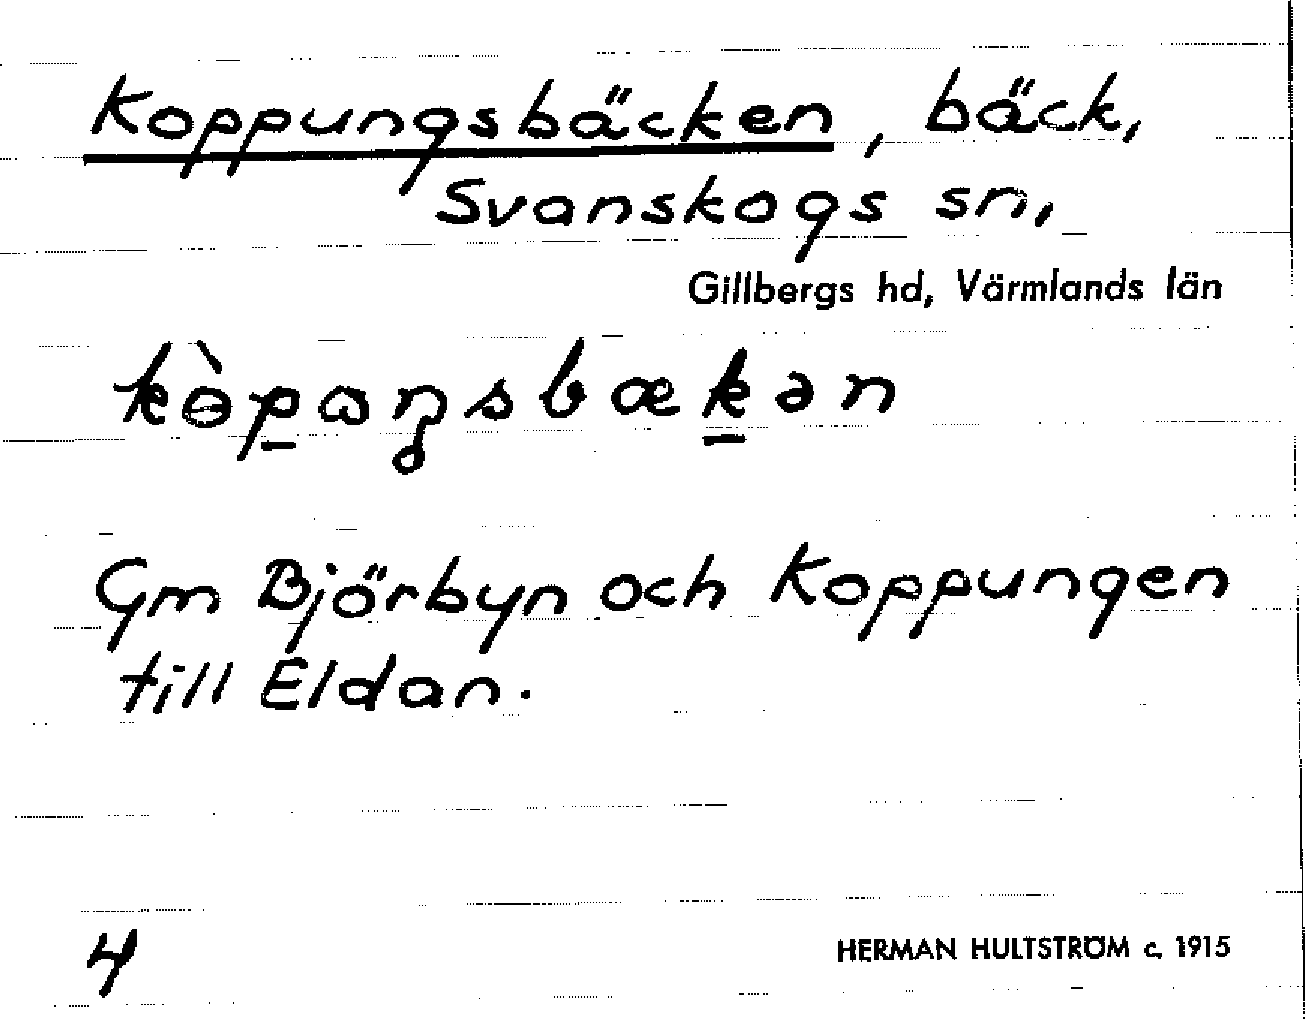 Koppungsbäcken, bäck,
Svanskogs sn,
Gillbergs hd, Värmlands län
kɵ̀pɷŋsbækən
Gm Björbyn och Koppungen
till Eldan.
4
HERMAN HULTSTRÖM c. 1915